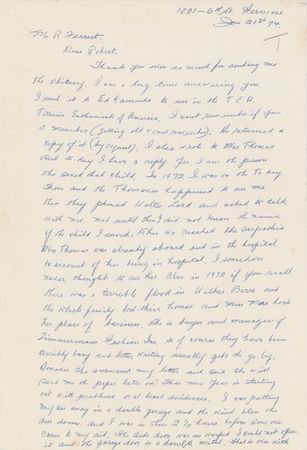 1021 - 6th St. Hermosa
Jan 21st 74.
Mr. R Forrest.
Dear Robert.
Thank you ever so much for sending me
the obituary. I am a long time answering you
I sent it to Ed Kamuda to see in the T E A
Titanic Enthusiasts of America. I can't remember if you
a member (getting old + can't remember). He returned a
copy of it (by request). I also wrote to Mrs Thomas
and to day I have a reply. Yes, I am the person
who saved that child. In 1972 I was on the To day
Show and the Thomases happened to see me
then they phoned Walter Lord and asked to talk
with me. Not until then I did not know the name
of the child I saved. When we reached the Carpathia
Mrs Thomas was already aboard and in the hospital
on account of her being in hospital, I somehow
never thought to see her. Also in 1972 if you recall
there was a terrible flood in Wilkes Barre and
the whole family lost their homes and Miss lost
her place of business. She is buyer and manager of
Zimmerman Fashion Inc. So of course they have been
terribly busy and letter writing usually gets the go by.
Anyway she answered my letter and said she will
send me the paper later on. This new year is starting
out with problems and least accidents. I was putting
my car away in a double garage and the wind blew the
door down. And I was in there 2½ hours before some one
came to my aid. The side door was so warped I could not open
it and the garage door is a double metal. That is over with